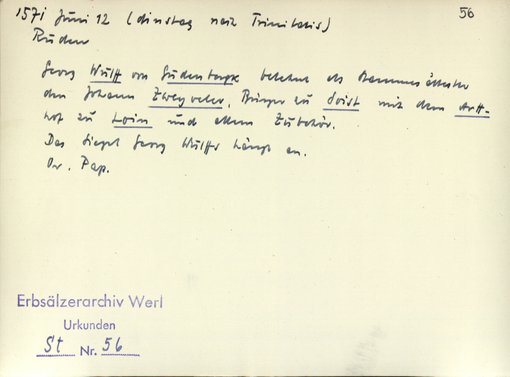 56
1571 Juni 12 (dinstag nach Trinitatis)
Ruden
Georg Wulff von Füdentorpe belehnt als Stammesältester
den Johann Zweyveler, Bürger zu Soist mit dem Arth-
hof zu Loin und allem Zubehör.
Das Siegel Georg Wulffs hängt an.
Or. Pap.
Erbsälzerarchiv Werl
Urkunden
St Nr. 56